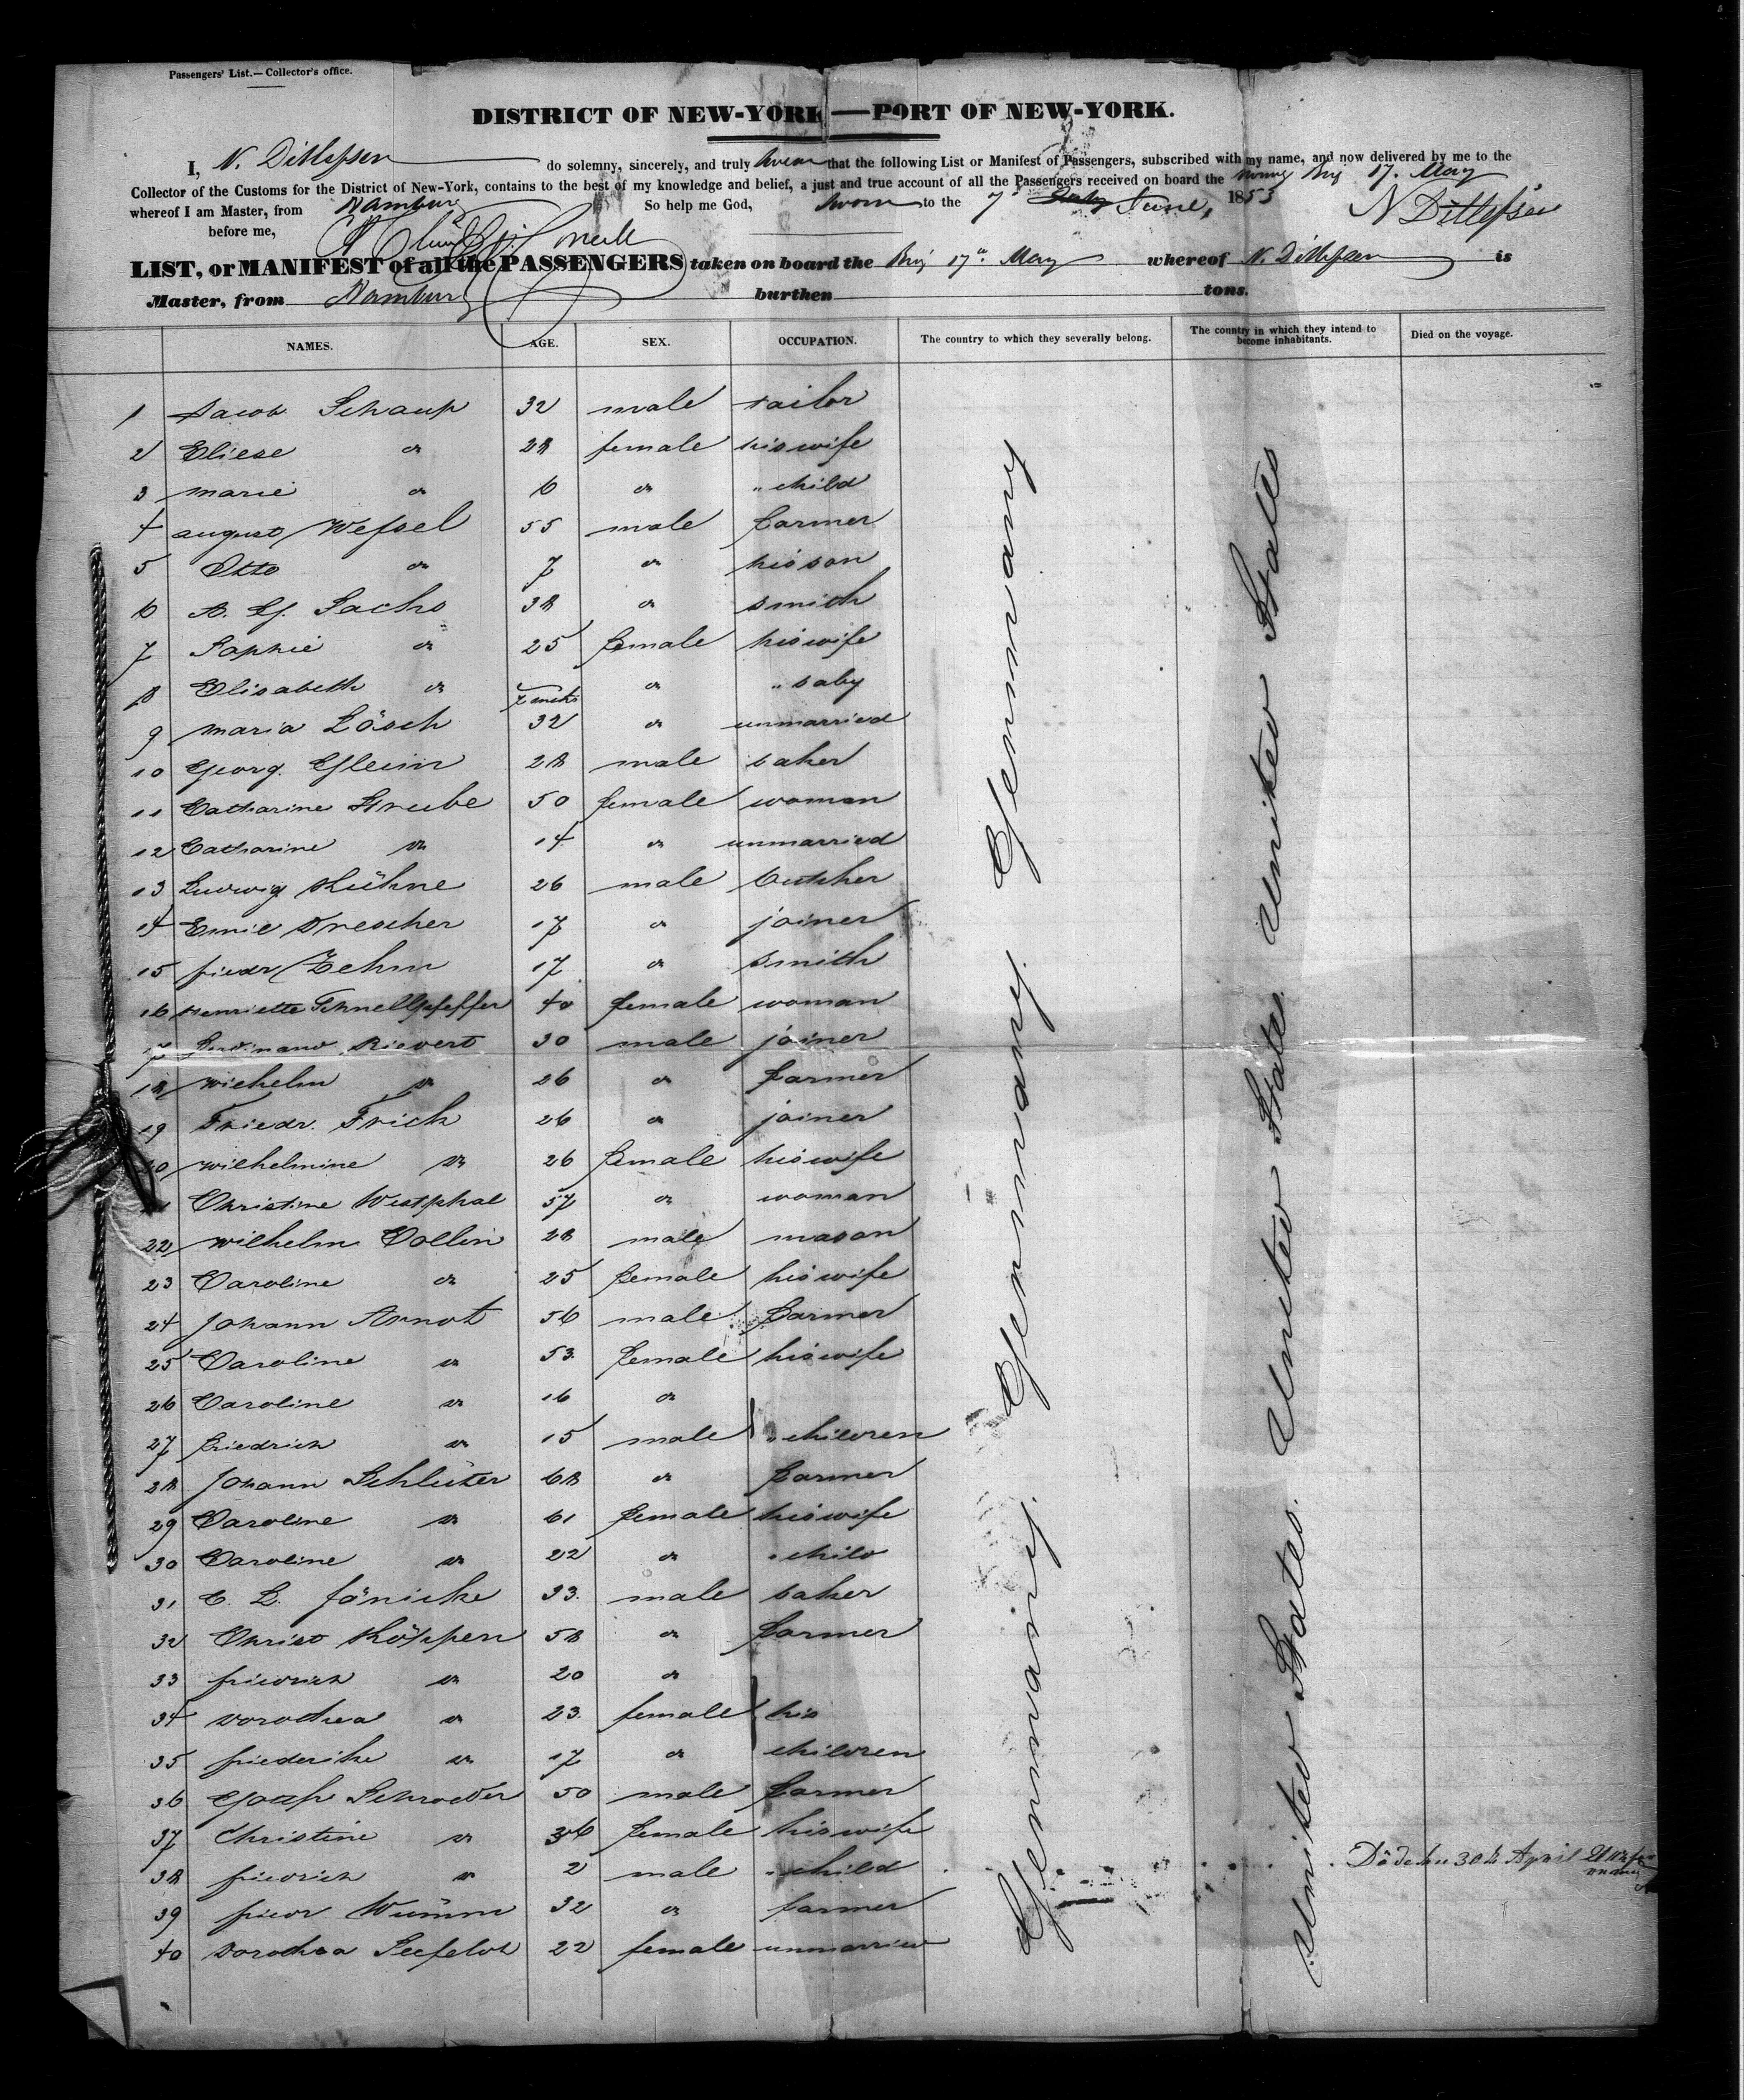 Passengers' List.—Collector's office.
DISTRICT OF NEW-YORK—PORT OF NEW-YORK.
I, N. Ditlefsen do solemny, sincerely, and truly swear that the following List or Manifest of Passengers, subscribed with my name, and now delivered by me to the
Collector of the Customs for the District of New-York, contains to the best of my knowledge and belief, a just and true account of all the Passengers received on board the Brig 17. May
whereof I am Master, from Hamburg So help me God, Sworn to the 7 June, 1853 N Ditlefsen
before me,
LIST, or MANIFEST of all the PASSENGERS taken on board the Brig 17th May whereof N. Ditlefsen is
Master, from Hamburg burthen tons.
NAMES. AGE. SEX. OCCUPATION. The country to which they severally belong. The country in which they intend to become inhabitants. Died on the voyage.
1 Jacob Schaup 32 male tailor
2 Eliese do 28 female his wife
3 Marie do 6 do " child
4 August Wessel 55 male farmer
5 Otto do 7 do his son
6 A. G. Sachs 38 do smith
7 Sophie do 25 female his wife
8 Elisabeth do 7 mths do " baby
9 Maria Lösch 32 do unmarried
10 Georg Gleim 28 male baker
11 Catharine Strube 50 female woman
12 Catharine do 14 do unmarried
13 Ludwig Kühne 26 male butcher
14 Emil Drescher 17 do joiner
15 friedr Zehm 17 do smith
16 Henriette Schnellpfeffer 40 female woman
17 Ferdinand Rievert 30 male joiner
18 Wilhelm do 26 do farmer
19 Friedr. Frick 26 do joiner
20 Wilhelmine do 26 female his wife
Christine Westphal 57 do woman
22 Wilhelm Collin 28 male mason
23 Caroline do 25 female his wife
24 Johann Arndt 56 male farmer
25 Caroline do 53 female his wife
26 Caroline do 16 do
27 friedrich do 15 male " children
28 Johann Schlüter 68 do farmer
29 Caroline do 61 female his wife
30 Caroline do 22 do " child
31 C. L. Jänicke 33 male baker
32 Christ Köppen 58 do farmer
33 friedrich do 20 do
34 Dorothea do 23 female his
35 friederike do 17 do children
36 Schroeder 50 male farmer
37 Christine do 36 female his wife
38 friedrich do 2 male " child Döde den 30th April
39 friedr Wümm 32 do farmer
40 Dorothea Seefeldt 22 female unmarried
Germany Germany Germany Germany
United States United States United States United States